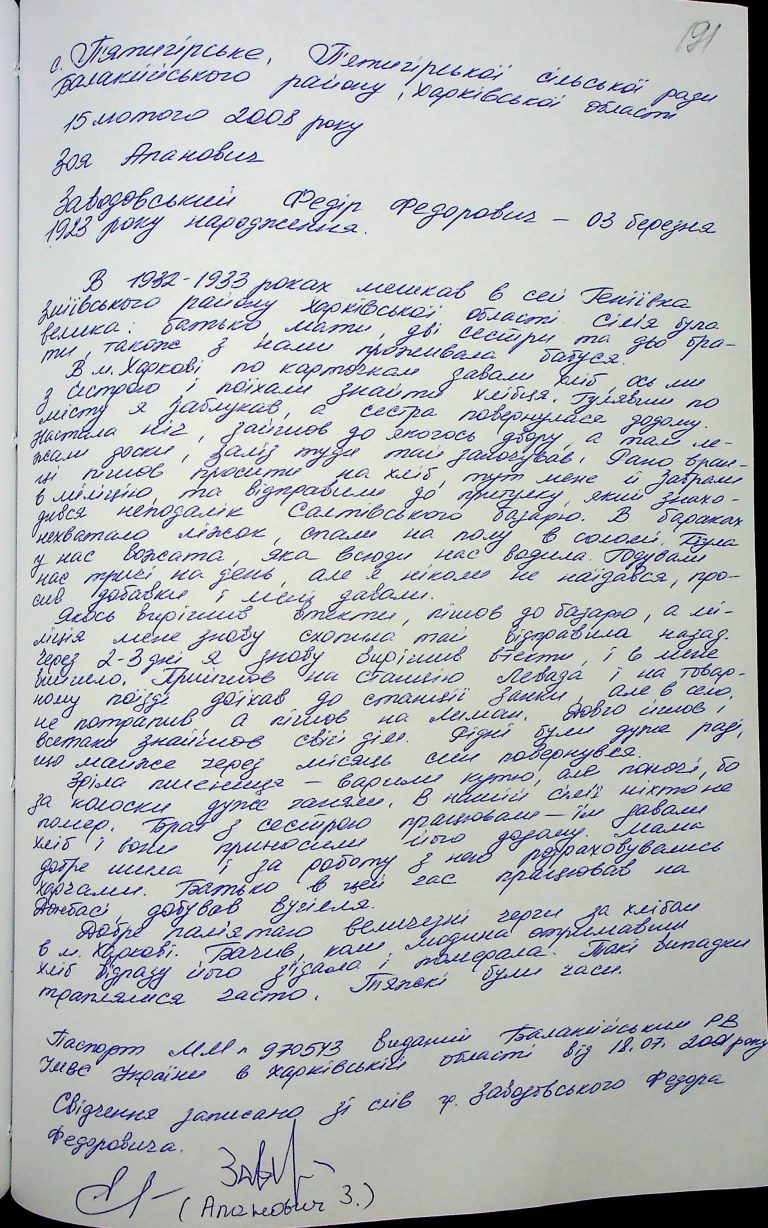 191
с. Пятигірське, Пятигірської сільської ради
Балаклійського району, Харківської області
15 лютого 2008 року
Зоя Апанович
Заводовський Федір Федорович – 03 березня
1923 року народження.
В 1932-1933 роках мешкав в селі Геніївка
Зміївського району Харківської області. Сім'я була
велика: батько, мати, дві сестри та два бра-
ти, також з нами проживала бабуся.
В м. Харкові по карточкам давали хліб, ось ми
з сестрою і поїхали знайти хлібця. Гуляючи по
місту я заблукав, а сестра повернулася додому.
Настала ніч, зайшов до якогось двору, а там ле-
жали доски, заліз туди там заночував. Рано вран-
ці пішов просити на хліб, тут мене й забрали
в міліцію, та відправили до притулку, який знахо-
дився неподалік Салтівського базарю. В бараках
нехватало ліжок, спали на полу в соломі. Була
у нас вожата, яка всюди нас водила. Годували
нас тричі на день, але я ніколи не наїдався, про-
сив добавки і мені давали.
Якось вирішив втекти, пішов до базарю, а мі-
ліція мене знову схопила там відправила назад.
Через 2-3 дні я знову вирішив втекти, і в мене
вийшло. Прийшов на станцію Левада і на товар-
ному поїзді доїхав до станції Занки, але в село,
не потрапив а пішов на Лиман. Довго йшов і
всетаки знайшов свій дім. Рідні були дуже раді,
що майже через місяць син повернувся.
Зріла пшениця – варили кутю, але поночі, бо
за колоски дуже ганяли. В нашій сім'ї ніхто не
помер. Брат з сестрою працювали – їм давали
хліб і вони приносили його додому. Мама
добре шила і за роботу з нею розраховувались
харчами. Батько в цей час працював на
Донбасі, добував вугілля.
Добре пам'ятаю величезні черги за хлібом
в м. Харкові. Бачив, коли людина отримавши
хліб відразу його з'їдала і помирала. Такі випадки
траплялися часто. Тяжкі були часи.
Паспорт ММ № 970543 виданий Балаклійським РВ
УМВС України в Харківській області від 18.07. 2001 року
Свідчення записано зі слів гр. Заводовського Федора
Федоровича.
(Апанович З.)